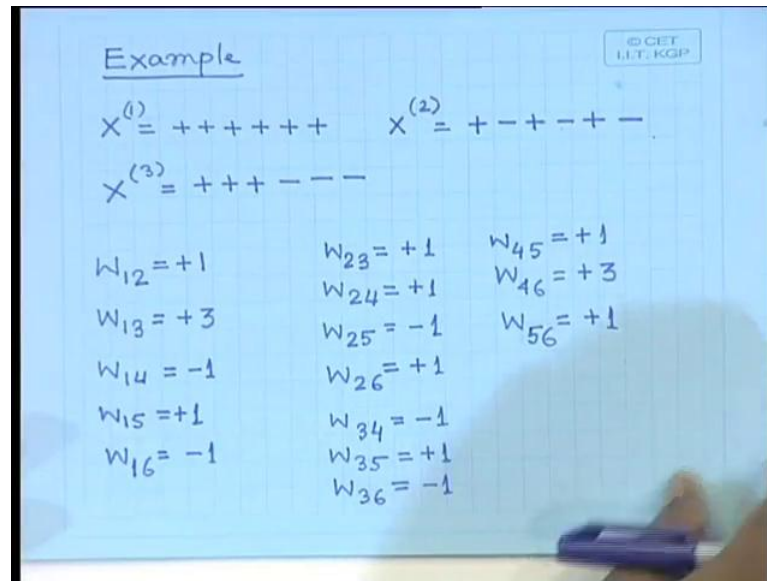 Example
© CET
I.I.T. KGP
X⁽¹⁾ = + + + + + +
X⁽²⁾ = + - + - + -
X⁽³⁾ = + + + - - -
W₁₂ = +1
W₁₃ = +3
W₁₄ = -1
W₁₅ = +1
W₁₆ = -1
W₂₃ = +1
W₂₄ = +1
W₂₅ = -1
W₂₆ = +1
W₃₄ = -1
W₃₅ = +1
W₃₆ = -1
W₄₅ = +1
W₄₆ = +3
W₅₆ = +1